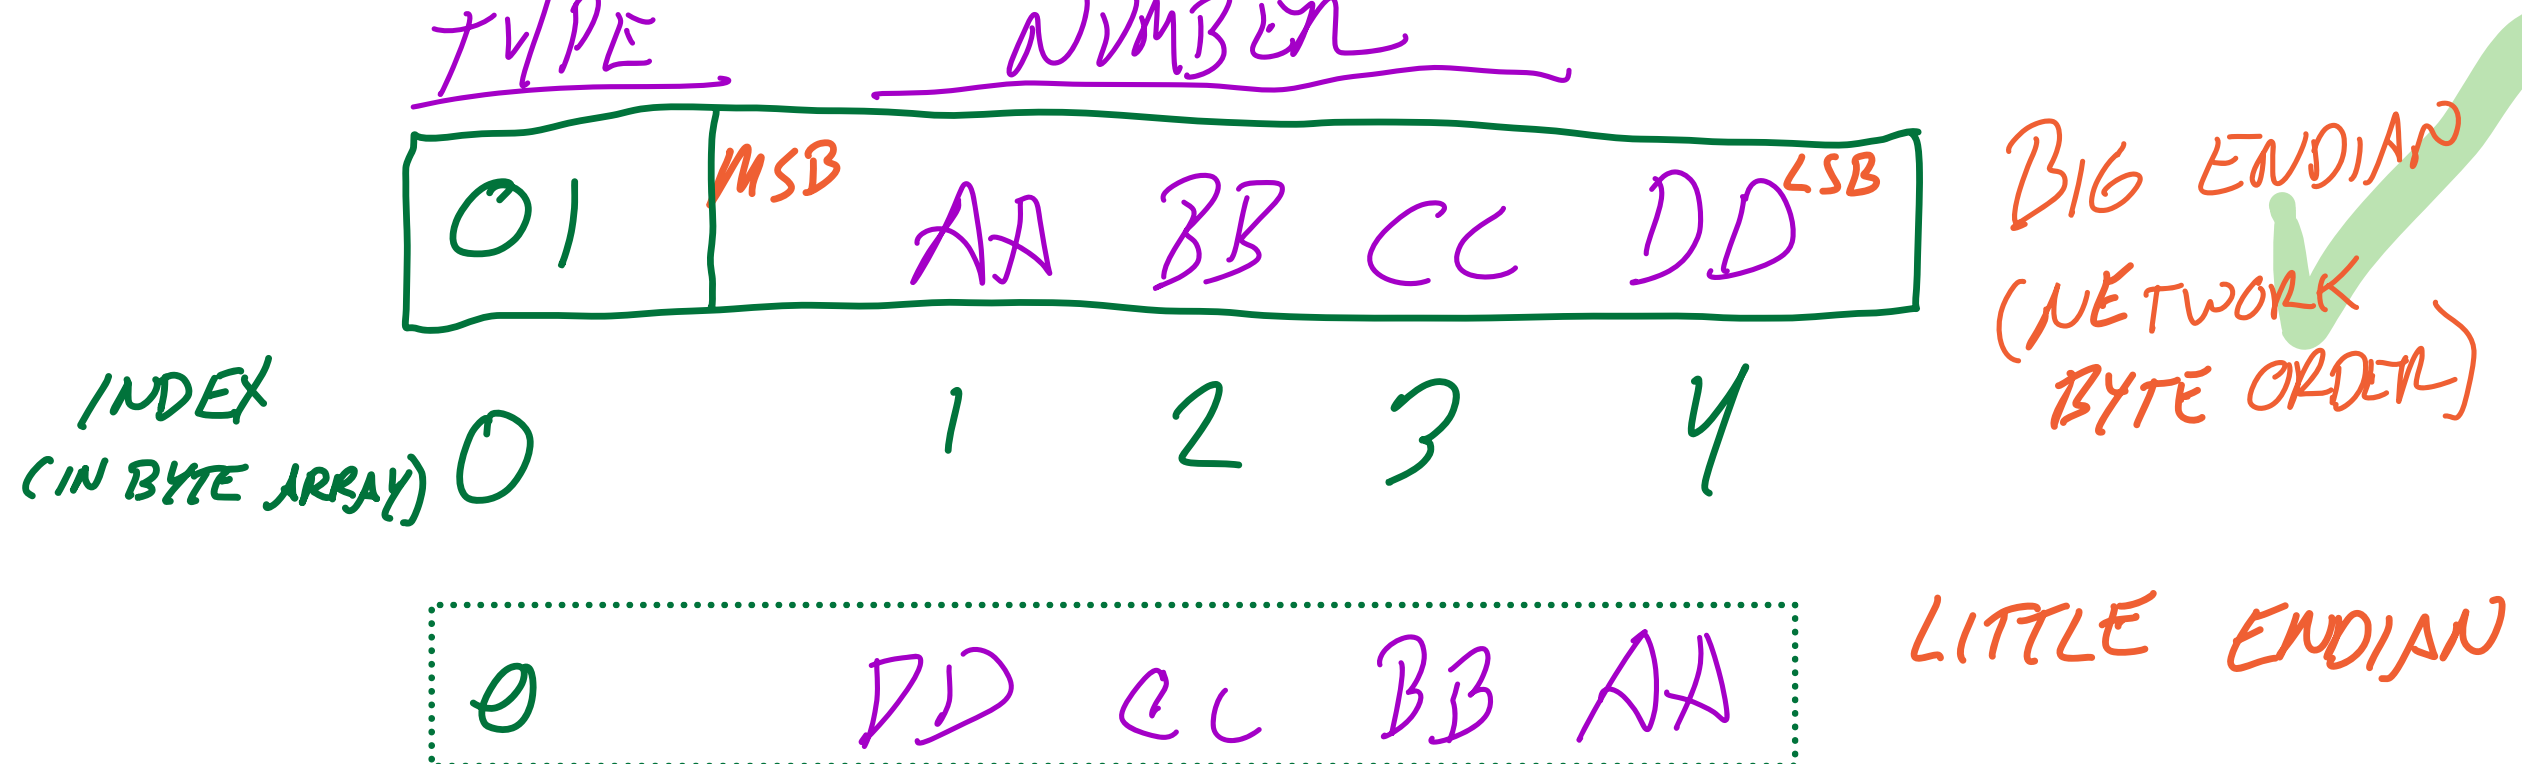 TYPE NUMBER
01 MSB AA BB CC DD LSB
BIG ENDIAN
(NETWORK
BYTE ORDER)
INDEX
(IN BYTE ARRAY)
0 1 2 3 4
0 DD CC BB AA
LITTLE ENDIAN